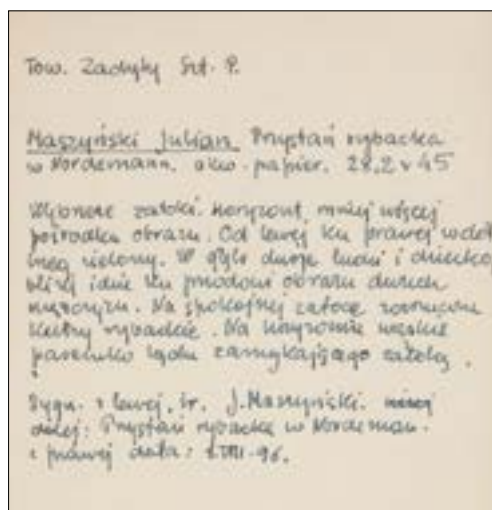 Tow. Zachęty Szt. P.
Maszyński Julian Przystań rybacka
w Nordemann. akw. papier. 28,2 x 45
zatoki. horyzont, mniej więcej
pośrodku obrazu. Od lewej ku prawej w dół
brzeg zielony. W głębi dwoje ludzi i dziecko
bliżej idzie ku przodowi obrazu dwóch
mężczyzn. Na spokojnej zatoce
kutry rybackie. Na horyzoncie wąskie
pasemko lądu zamykającego zatokę.
Sygn. z lewej, śr. J. Maszyński.
dalej: Przystań rybacka w Nordeman.
z prawej data: VIII-96.